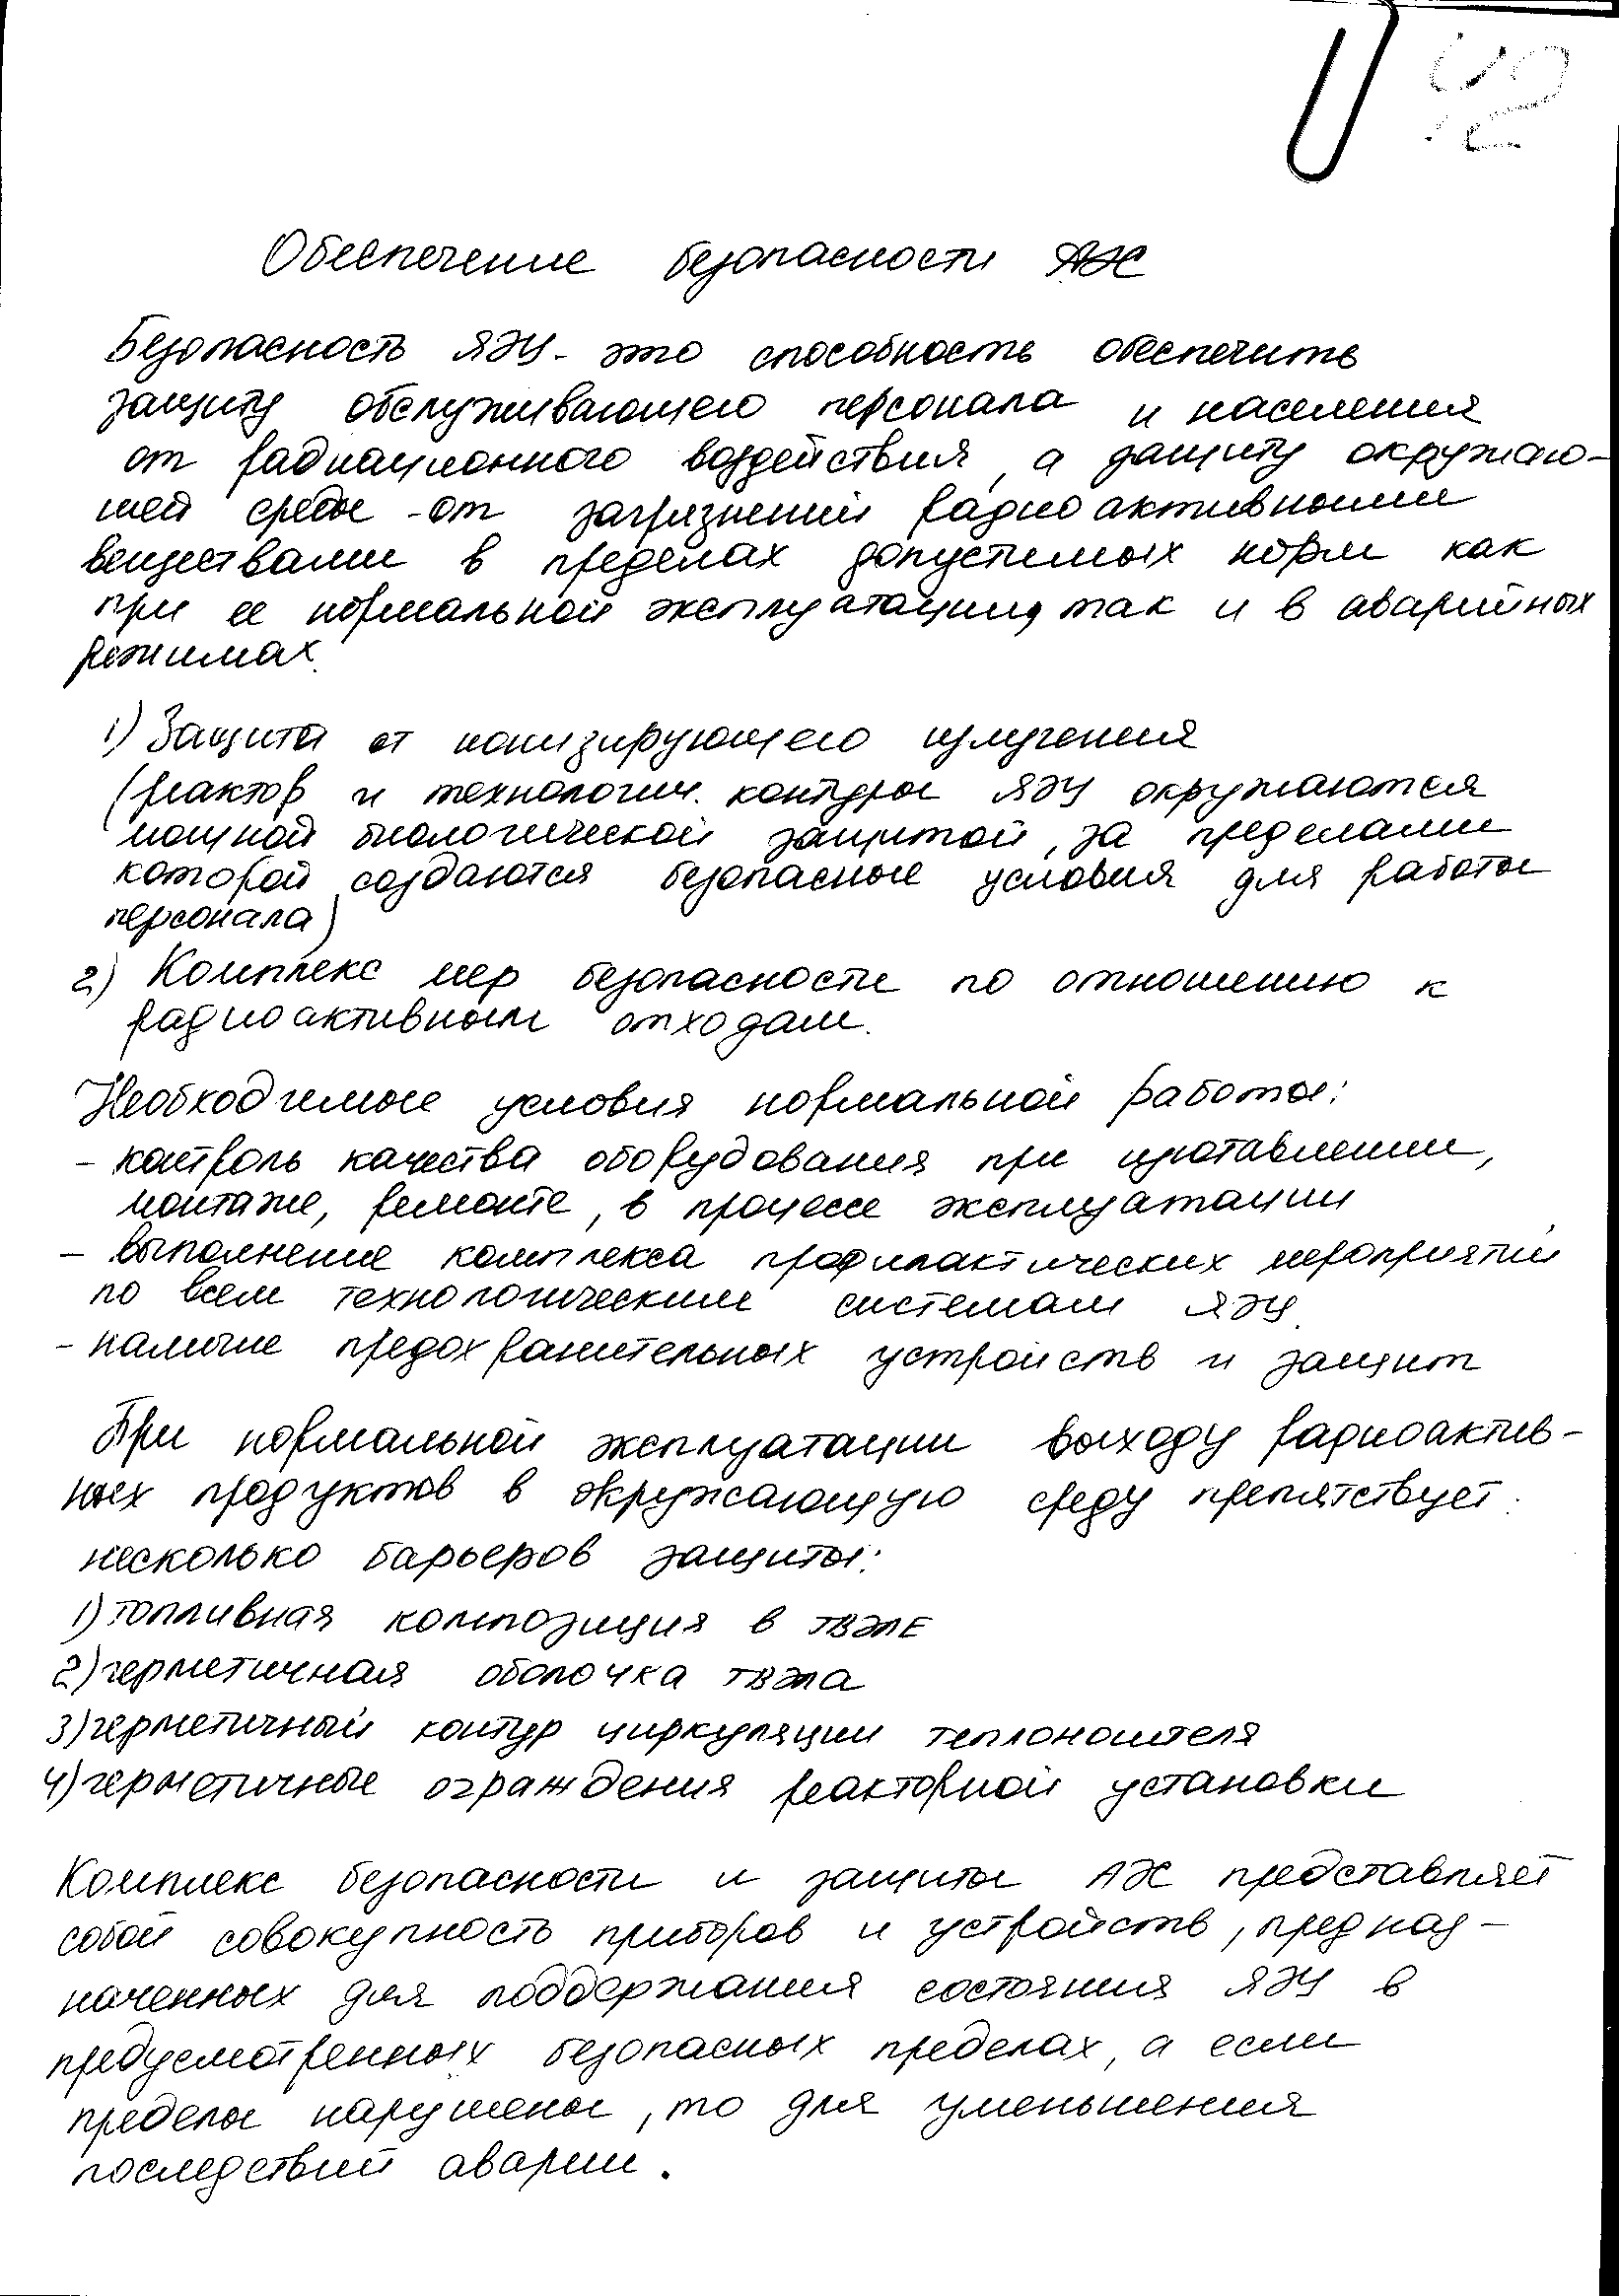 42
Обеспечение безопасности АЭС
Безопасность ЯЭУ - это способность обеспечить
защиту обслуживающего персонала и населения
от радиационного воздействия, а защиту окружаю-
щей среды - от загрязнений радиоактивными
веществами в пределах допустимых норм как
при ее нормальной эксплуатации, так и в аварийных
режимах.
1) Защита от ионизирующего излучения
(реактор и технологич. контуры ЯЭУ окружаются
мощной биологической защитой, за пределами
которой создаются безопасные условия для работы
персонала)
2) Комплекс мер безопасности по отношению к
радиоактивным отходам.
Необходимые условия нормальной работы:
- контроль качества оборудования при изготавлении,
монтаже, ремонте, в процессе эксплуатации
- выполнение комплекса профилактических мероприятий
по всем технологическим системам ЯЭУ.
- наличие предохранительных устройств и защит
При нормальной эксплуатации выходу радиоактив-
ных продуктов в окружающую среду препятствует
несколько барьеров защиты:
1) топливная композиция в ТВЭЛЕ
2) герметичная оболочка твэла
3) герметичный контур циркуляции теплоносителя
4) герметичные ограждения реакторной установки
Комплекс безопасности и защиты АЭС представляет
собой совокупность приборов и устройств, предназ-
наченных для поддержания состояния ЯЭУ в
предусмотренных безопасных пределах, а если
пределы нарушены, то для уменьшения
последствий аварии.